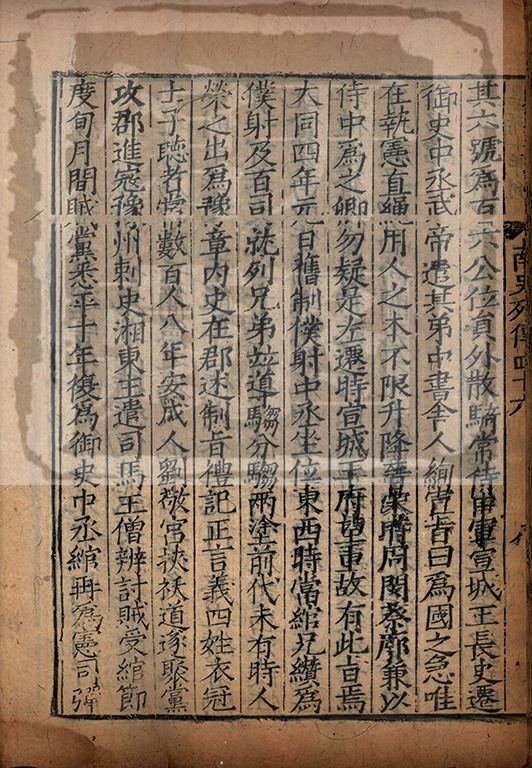 南史列傳四十六
其六號為百六公位員外散騎常侍中軍宣城王長史遷
御史中丞武帝遣其弟中書舍人絢宣旨曰為國之急唯
在執憲直繩用人之本不限升降晉宋時周閔蔡廓兼以
侍中為之卿勿疑是左遷時宣城王府望重故有此旨焉
大同四年元日舊制僕射中丞坐位東西時當綰兄纘為
僕射及百司就列兄弟竝導騶分騶兩塗前代未有時人
榮之出為豫章內史在郡述制旨禮記正言義四姓衣冠
士子聽者常數百人八年安成人劉敬宮挾祅道遂聚黨
攻郡進寇豫州刺史湘東王遣司馬王僧辨討賊受綰節
度旬月間賊黨悉平十年復為御史中丞綰再為憲司彈